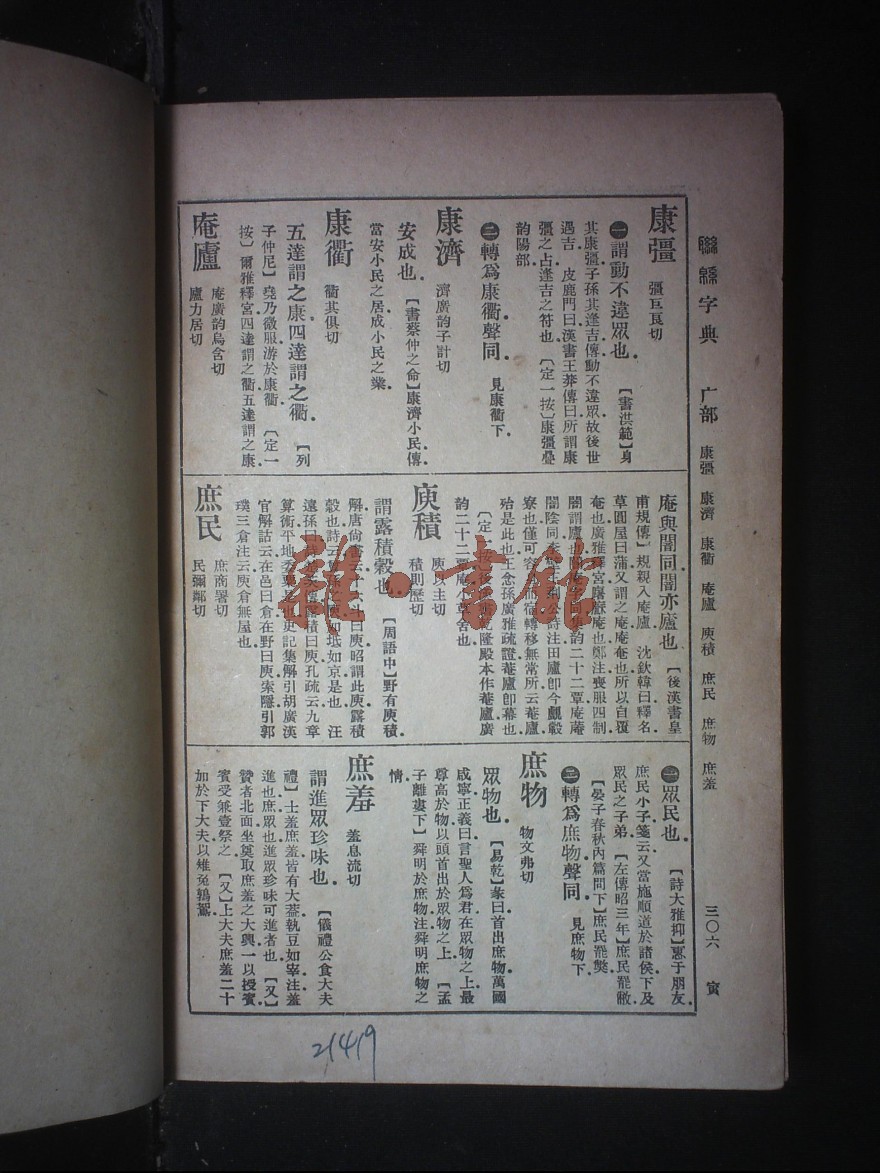 聯緜字典 广部 康彊 康濟 康衢 庵廬 庾積 庶民 庶物 庶羞 三〇六 寅
康彊 彊巨良切
㊀謂動不違眾也 【書洪範】身
其康彊子孫其逢吉傳動不違眾故後世
遇吉 皮鹿門曰漢書王莽傳曰所謂康
彊之占逢吉之符也 〔定一按〕康彊疊
韵陽部
㊁轉爲康衢聲同 見康衢下
康濟 濟廣韵子計切
安成也 【書蔡仲之命】康濟小民傳
當安小民之居成小民之業
康衢 衢其俱切
五達謂之康四達謂之衢 【列
子仲尼】堯乃微服游於康衢 〔定一
按〕爾雅釋宮四達謂之衢五達謂之康
庵廬 庵廣韵烏含切
廬力居切
庵與闇同闇亦廬也 【後漢書皇
甫規傳】規親入庵廬 沈欽韓曰釋名
草圓屋曰蒲又謂之庵庵奄也所以自覆
奄也廣雅釋宮廜㢝庵也鄭注喪服四制
闇謂廬也
闇陰同 公詩注田廬卽今觀
寮也僅可容 而宿轉移無常所云菴廬
殆是此也王念孫廣雅疏證菴廬卽幕也
〔定一按〕 隆殿本作菴廬廣
韵二十二覃庵小草舍也
庾積 庾以主切
積則歷切
謂露積穀也 【周語中】野有庾積
解唐尙書云 斗曰庾昭謂此庾露積
穀也詩云 庾如坻如京是也 汪
遠孫曰 傳露積曰庾孔疏云九章
算術平地委粟 也史記集解引胡廣漢
官解詁云在邑曰倉在野曰庾索隱引郭
璞三倉注云庾倉無屋也
庶民 庶商署切
民彌鄰切
㊀眾民也 【詩大雅抑】惠于朋友
庶民小子箋云又當施順道於諸侯下及
眾民之子弟 【左傳昭三年】庶民罷敝
【晏子春秋內篇問下】庶民罷獘
㊁轉爲庶物聲同 見庶物下
庶物 物文弗切
眾物也 【易乾】彖曰首出庶物萬國
咸寧正義曰言聖人爲君在眾物之上最
尊高於物以頭首出於眾物之上 【孟
子離婁下】舜明於庶物注舜明庶物之
情
庶羞 羞息流切
謂進眾珍味也 【儀禮公食大夫
禮】士羞庶羞皆有大蓋執豆如宰注羞
進也庶眾也進眾珍味可進者也 【又】
贊者北面坐奠取庶羞之大興一以授賓
賓受兼壹祭之 【又】上大夫庶羞二十
加於下大夫以雉兔鶉鴽
雜·书馆
21419